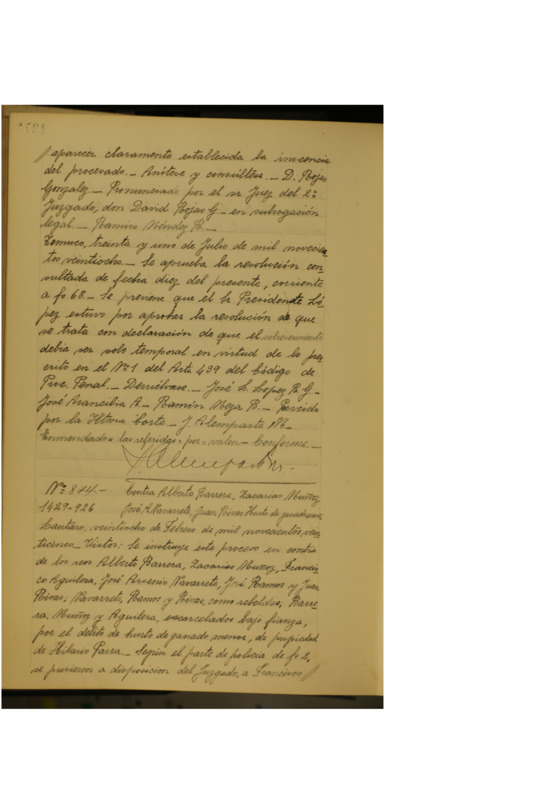 aparecer claramente establecida la inocencia
del procesado.- Anótese y consúltese.- D. Rojas
Gonzalez.- Pronunciado por el sr Juez del 2º
Juzgado, don David Rojas G- en subrogación
legal.- Ramiro Méndez R.-
Temuco, treinta y uno de Julio de mil novecien
tos veintiocho.- Se aprueba la resolución con
sultada de fecha diez del presente, corriente
a fs 68.- Se previene que el sr Presidente Ló
pez estuvo por aprobar la resolución de que
se trata con declaración de que el sobreseimiento
debia ser solo temporal en virtud de lo pres
crito en el Nº1 del Art. 439 del Código de
Proc. Penal.- Devuélvase.- José L. Lopez R. G-
José Arancibia A.- Ramón Meza B.- Proveido
por la Iltma Corte- J. Alemparte M-
Enmendado= las referidas= por= valen- Conforme.-
Nº 844- Contra Alberto Barrera, Zacarías Muñoz,
1429-926 José A. Navarrete, Juan Rivas Hurto de ganado menor
Lautaro, veintiocho de Febrero de mil novecientos, vein
tiseis.- Vistos: Se instruye este proceso en contra
de los reos Alberto Barrera, Zacarías Muñoz, Francis
co Aguilera, José Arsenio Navarrete, José Ramos y Juan
Rivas; Navarrete, Ramos y Rivas, como rebeldes, Barre
ra, Muñoz y Aguilera, excarcelados bajo fianza,
por el delito de hurto de ganado menor, de propiedad
de Hilario Parra.- Según el parte de policia de fs 2,
se pusieron a disposicion del Juzgado, a Francisco